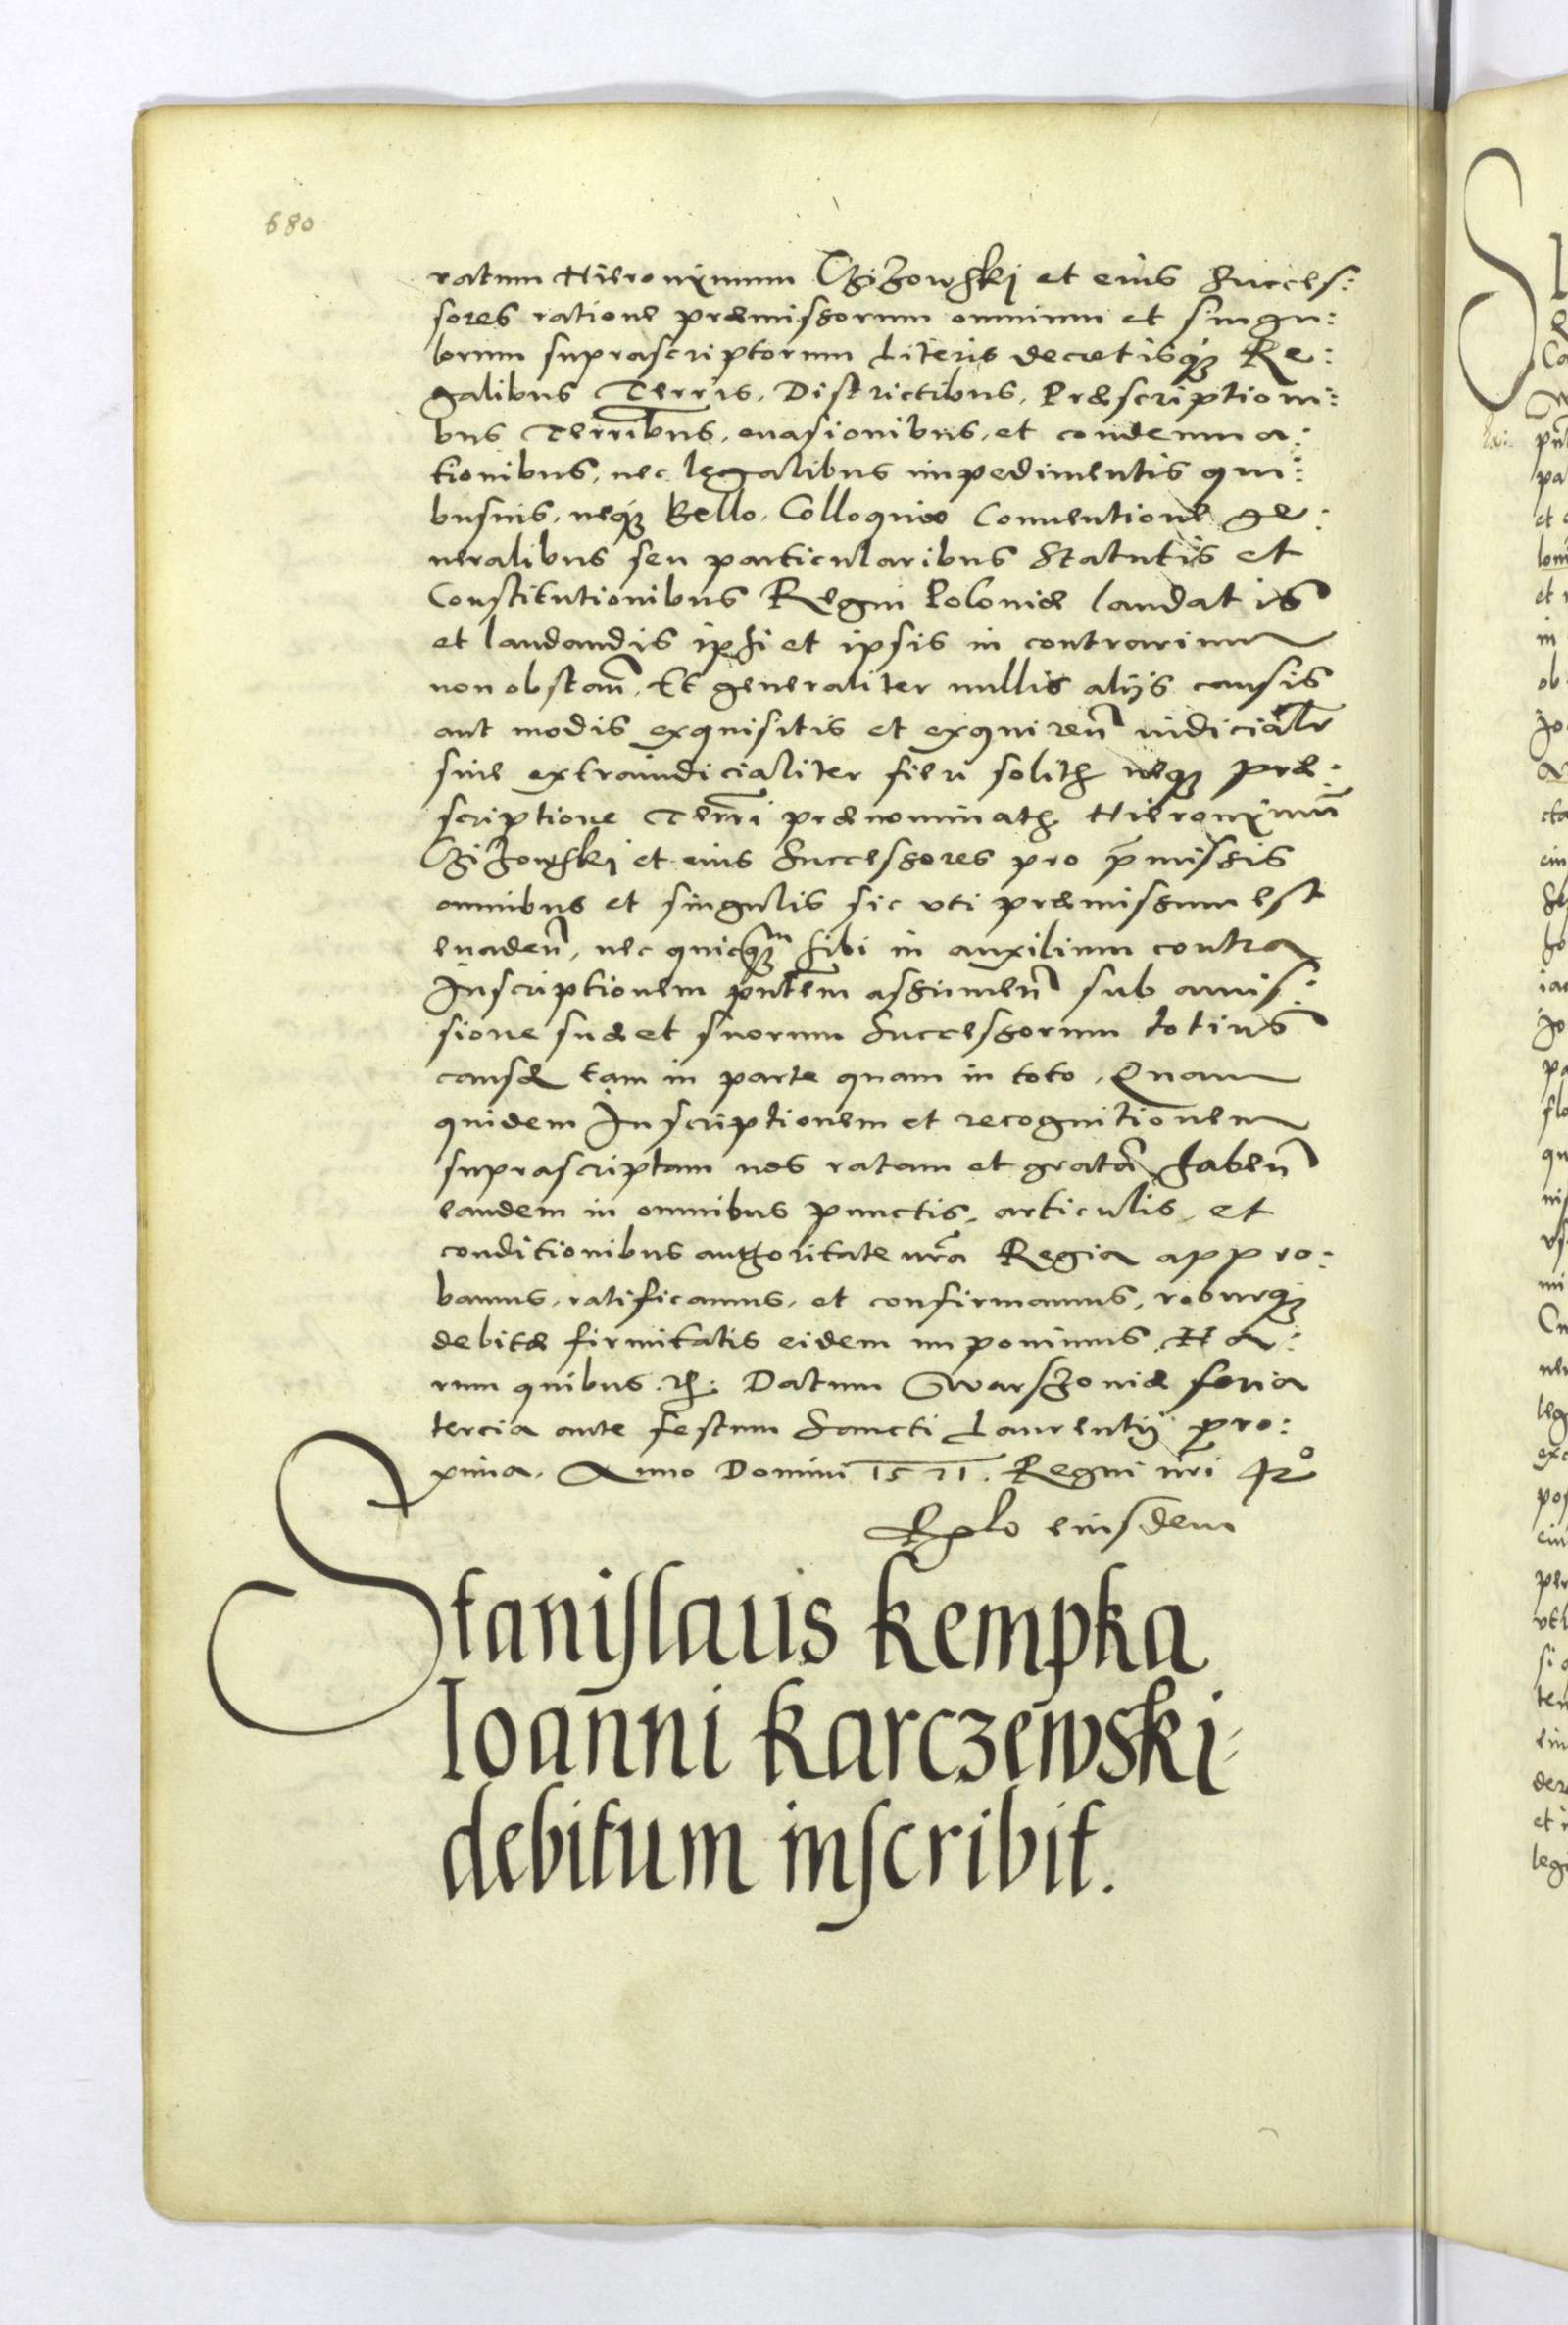 680
ratum Hieronimum Czizowski et eius Succes:
sores ratione præmissorum omnium et singu:
lorum suprascriptorum Literis decretisq3 Re:
galibus Terris, Districtibus, Præscriptioni:
bus Terribus, euasionibus, et condemna:
tionibus, nec legalibus impedimentis qui:
busuis, neq3 Bello, Colloquio Conuentione ge:
neralibus seu particularibus Statutis et
Constitutionibus Regni Poloniæ laudatis
et laudandis ipsi et ipsis in contrarium
non obstan̄. Et generaliter nullis alijs causis
aut modis exquisitis et exquiren̄ iudicialr̄
siue extraiudicialiter fieri solitis neq3 præ:
scriptione Terri prænominatus Hieronimū
Czizowski et eius Successores pro p̄missis
omnibus et singulis sic vti præmissum est
euaden̄, nec quicq3m sibi in auxilium contra
Inscriptionem pn̄tem assumen̄ sub amis:
sione suæ et suorum Successorum totius
causæ tam in parte quam in toto. Quam
quidem Inscriptionem et recognitionem
suprascriptam nos ratam et gratā haben̄
eandem in omnibus punctis, articulis, et
conditionibus authoritate nr̄a Regia appro:
bamus, ratificamus, et confirmamus, roburq3
debitæ firmitatis eidem imponimus. Ha:
rum quibus. Datum Warszouiæ feria
tercia ante festum Sancti Laurentij pro:
xima. Anno Domini 1571. Regni nr̄i 42°
Rel̄o eiusdem
Stanislaus Kempka
Ioanni Karczewski
debitum inscribit.